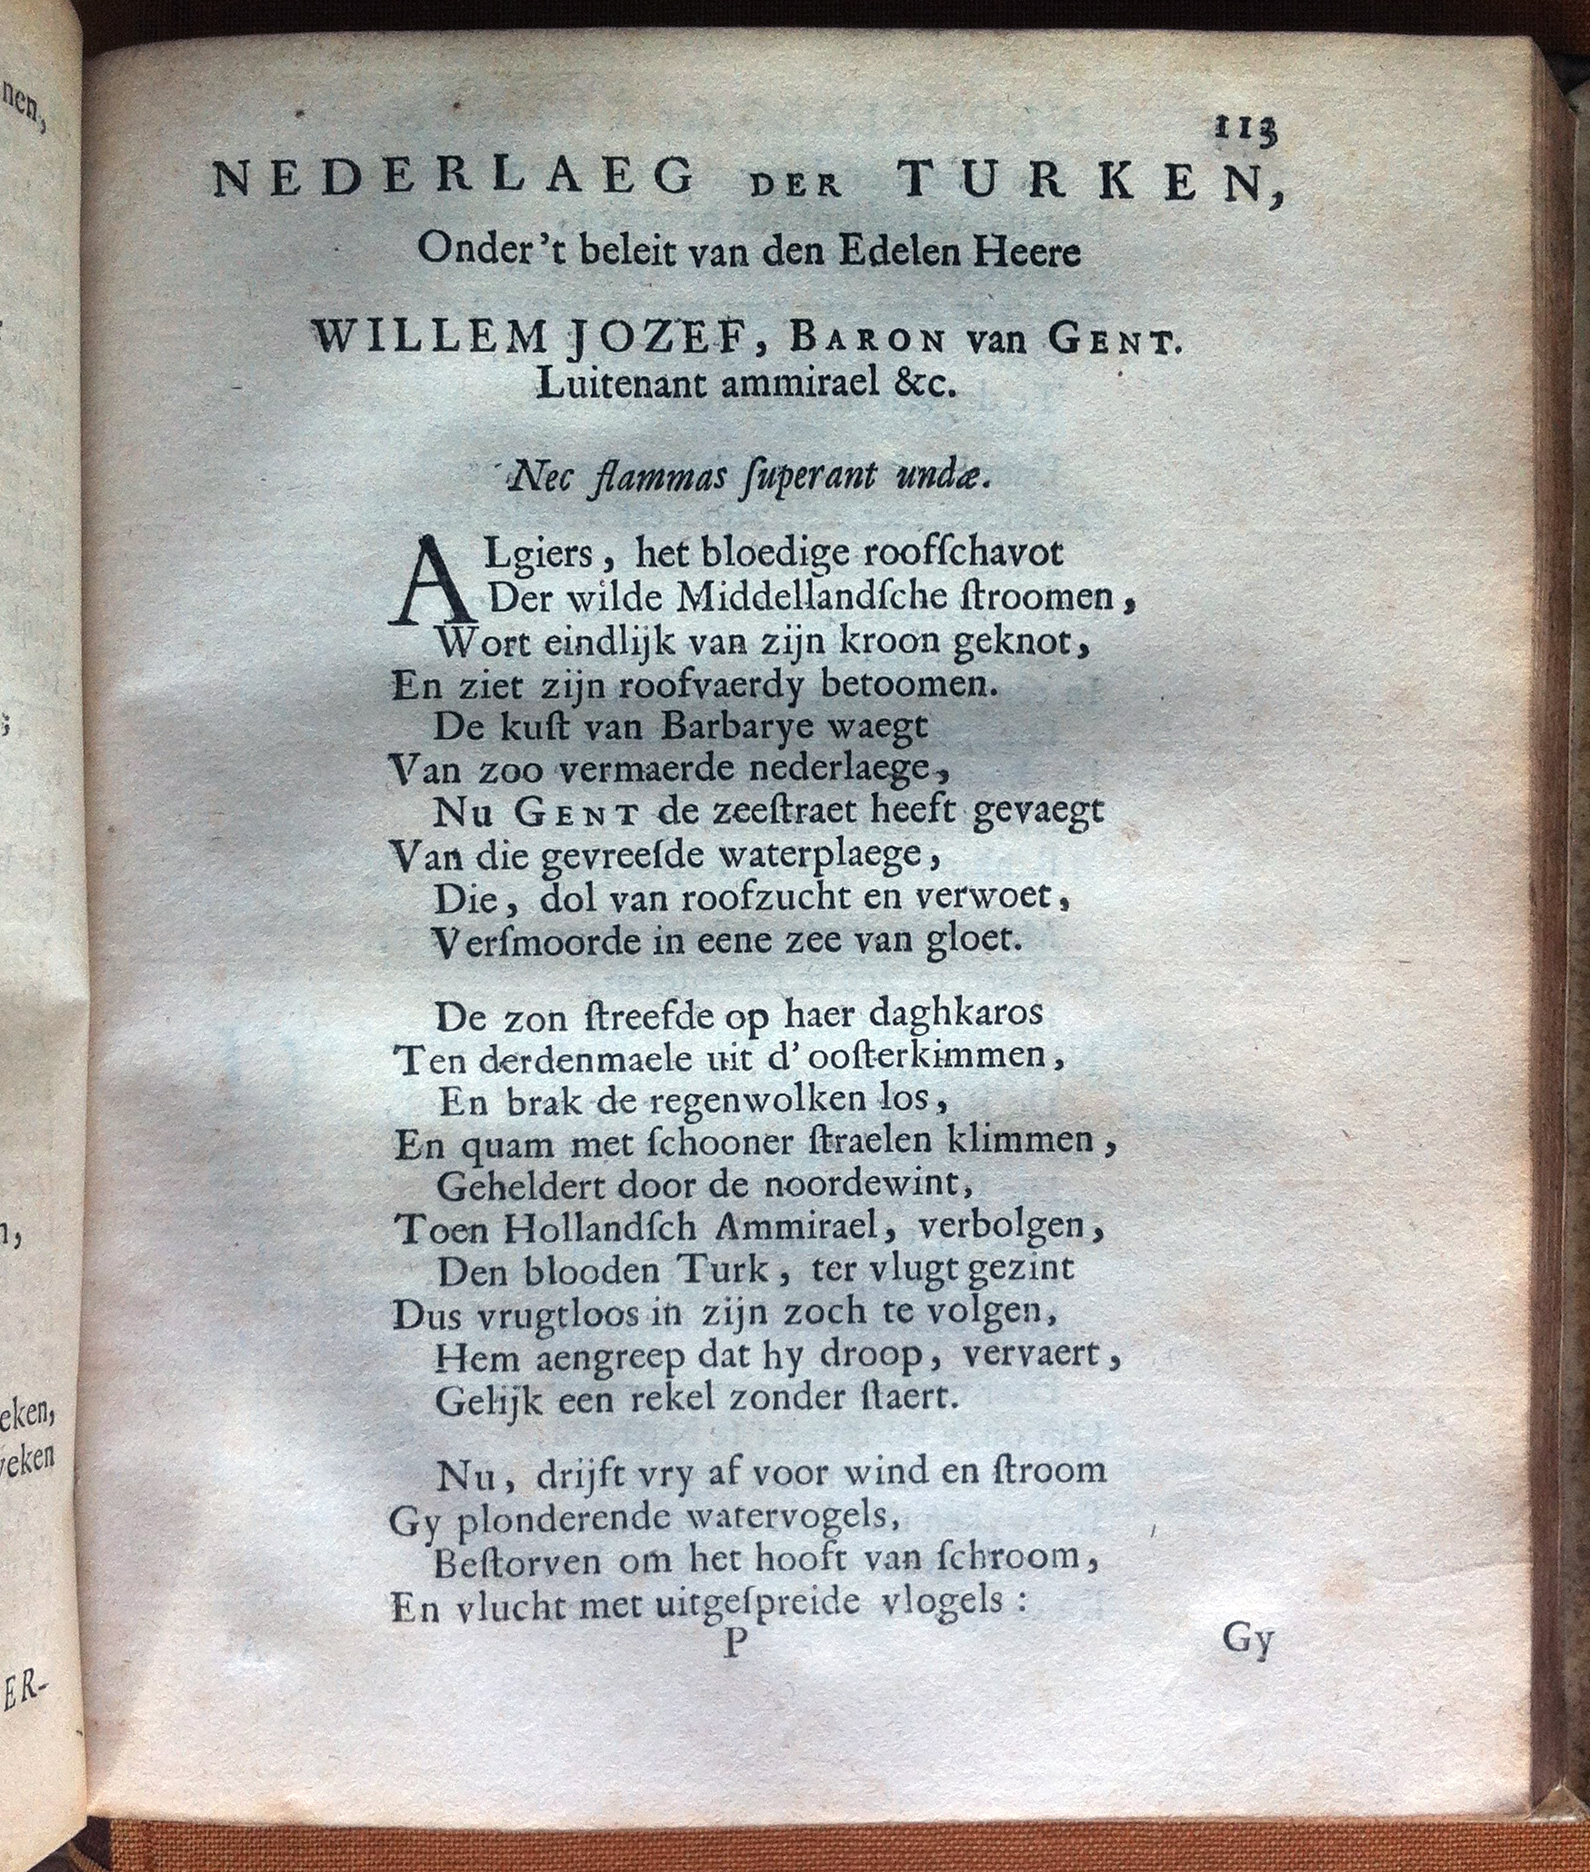 113
NEDERLAEG DER TURKEN,
Onder 't beleit van den Edelen Heere
WILLEM JOZEF, BARON van GENT.
Luitenant ammirael &c.
Nec flammas ſuperant undæ.
ALgiers, het bloedige roofſchavot
Der wilde Middellandſche ſtroomen,
Wort eindlijk van zijn kroon geknot,
En ziet zijn roofvaerdy betoomen.
De kuſt van Barbarye waegt
Van zoo vermaerde nederlaege,
Nu GENT de zeeſtraet heeft gevaegt
Van die gevreeſde waterplaege,
Die, dol van roofzucht en verwoet,
Verſmoorde in eene zee van gloet.
De zon ſtreefde op haer daghkaros
Ten derdenmaele uit d' ooſterkimmen,
En brak de regenwolken los,
En quam met ſchooner ſtraelen klimmen,
Geheldert door de noordewint,
Toen Hollandſch Ammirael, verbolgen,
Den blooden Turk, ter vlugt gezint
Dus vrugtloos in zijn zoch te volgen,
Hem aengreep dat hy droop, vervaert,
Gelijk een rekel zonder ſtaert.
Nu, drijft vry af voor wind en ſtroom
Gy plonderende watervogels,
Beſtorven om het hooft van ſchroom,
En vlucht met uitgeſpreide vlogels :
P
Gy
nen,
;
n,
eken,
veken
ER-